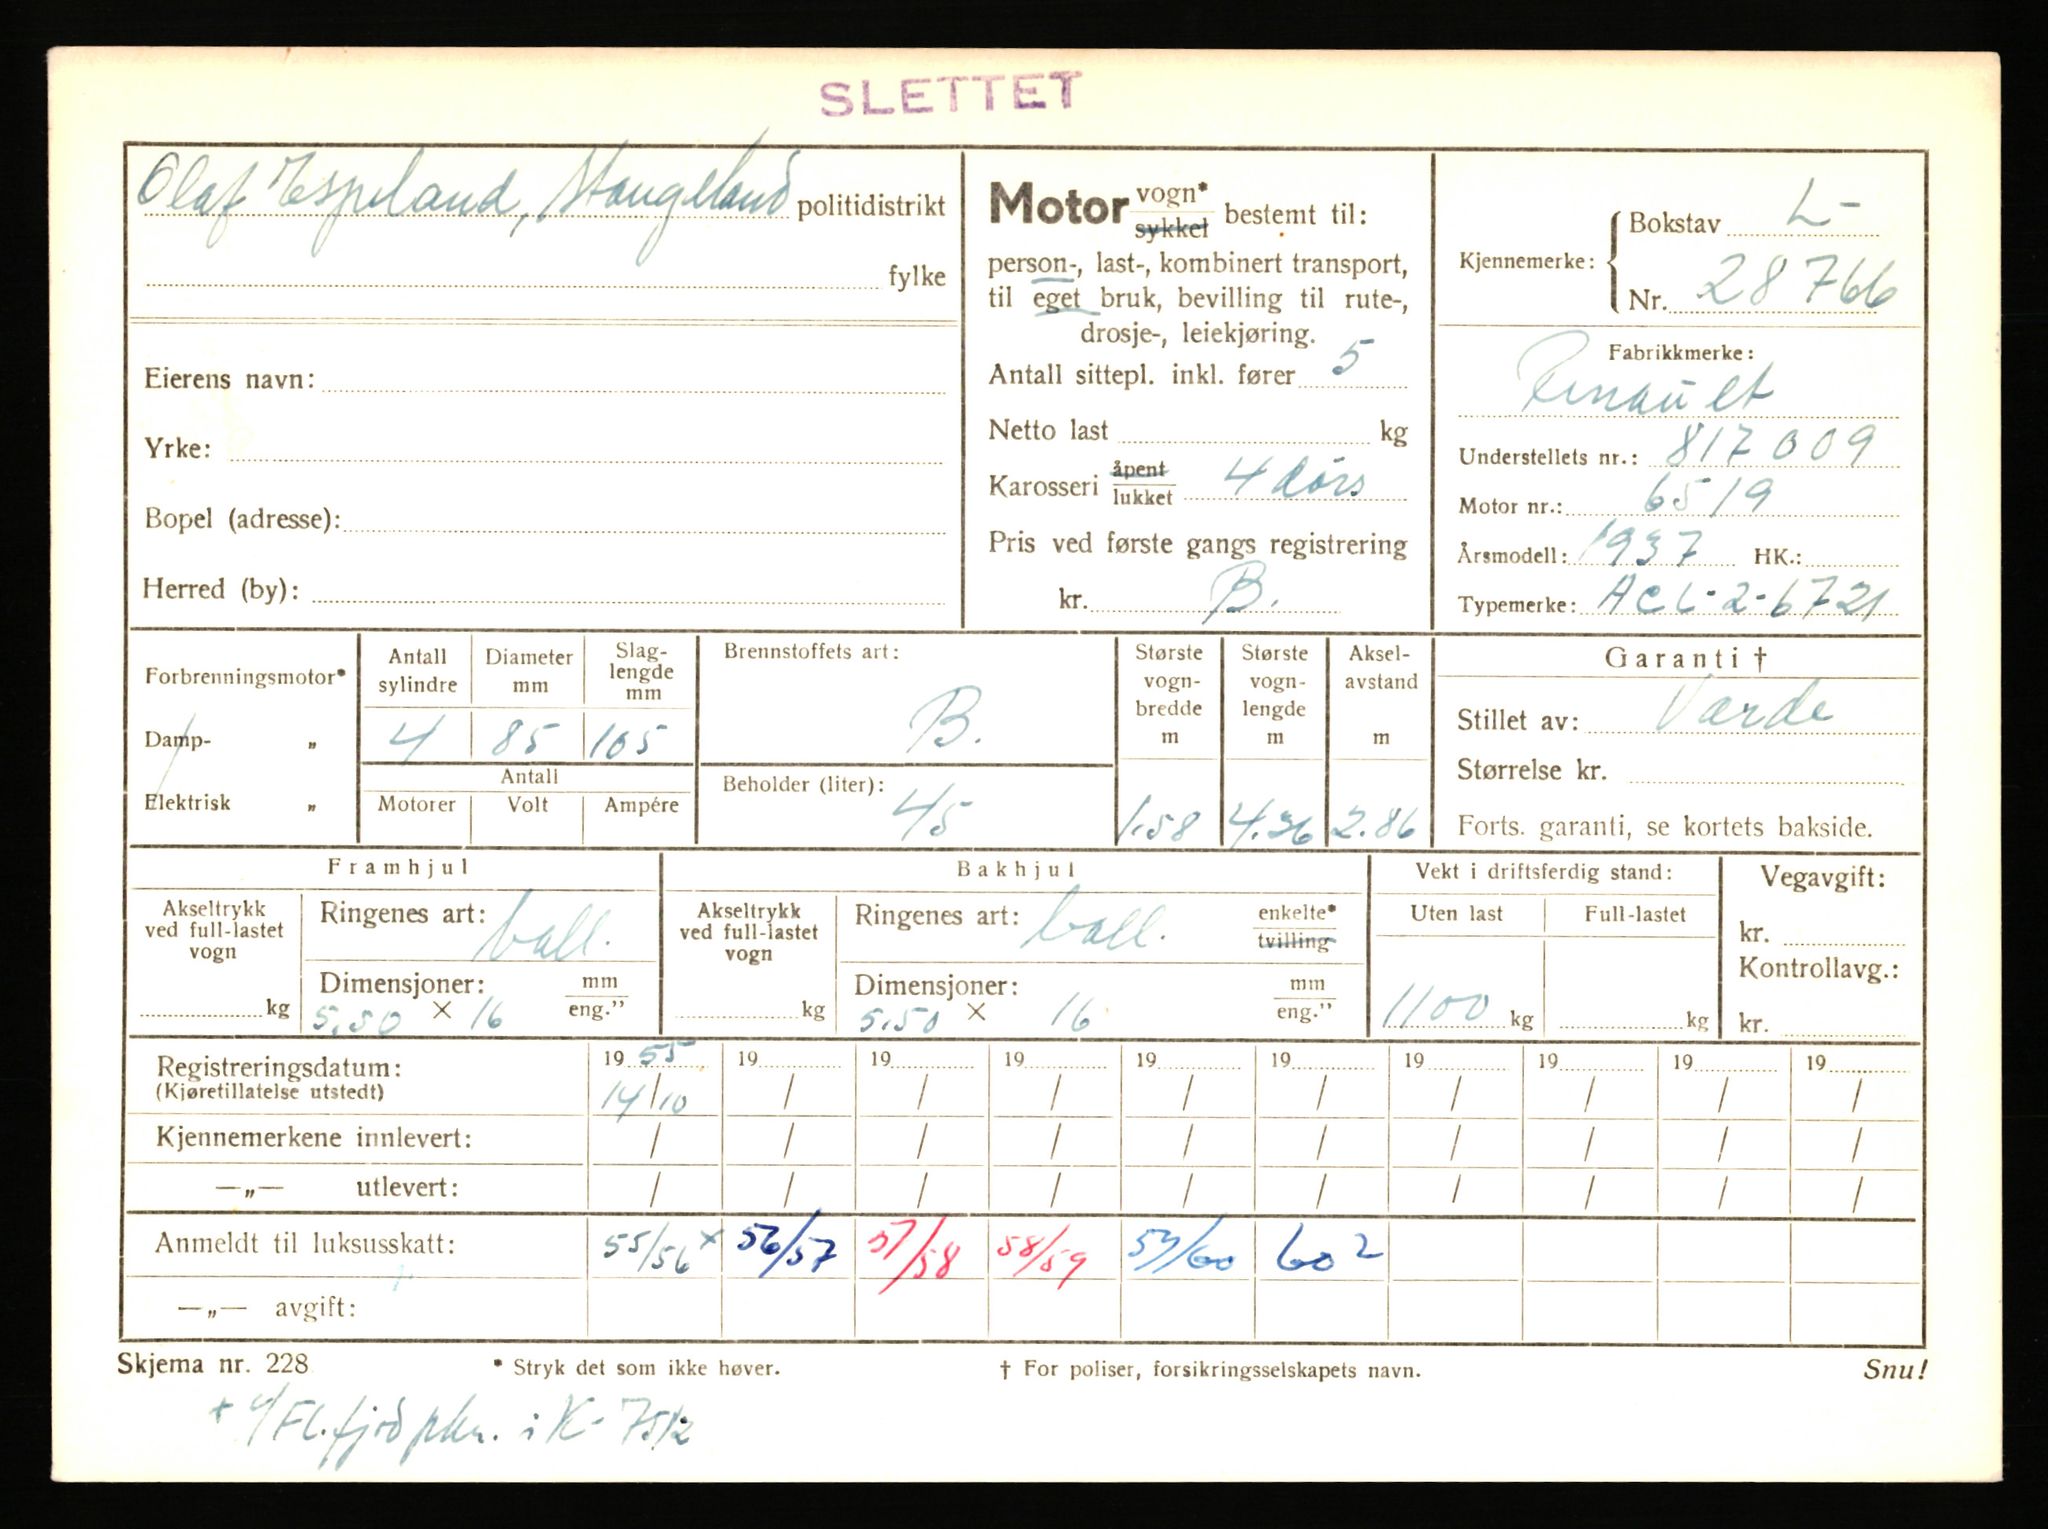 SLETTET
Olaf Espeland, Stangeland politidistrikt
fylke
Eierens navn:
Yrke:
Bopel (adresse):
Herred (by):
Motor vogn* sykkel bestemt til:
person-, last-, kombinert transport,
til eget bruk, bevilling til rute-,
drosje-, leiekjøring.
Antall sittepl. inkl. fører 5
Netto last kg
Karosseri åpent lukket 4 dørs
Pris ved første gangs registrering
kr. B.
Kjennemerke: Bokstav L-
Nr. 28766
Fabrikkmerke:
Renault
Understellets nr.: 817009
Motor nr.: 6519
Årsmodell: 1937 HK.:
Typemerke: ACL-2-6721
Forbrenningsmotor*
Damp- „
Elektrisk „
Antall sylindre Diameter mm Slaglengde mm
4 85 105
Antall
Motorer Volt Ampére
Brennstoffets art:
B.
Beholder (liter):
45
Største vognbredde m
1.58
Største vognlengde m
4.36
Akselavstand m
2.86
Garanti †
Stillet av: Varde
Størrelse kr.
Forts. garanti, se kortets bakside.
Framhjul
Akseltrykk ved full-lastet vogn
kg
Ringenes art: ball.
Dimensjoner: mm eng."
5.50 × 16
Bakhjul
Akseltrykk ved full-lastet vogn
kg
Ringenes art: ball. enkelte* tvilling
Dimensjoner: mm eng."
5.50 × 16
Vekt i driftsferdig stand:
Uten last Full-lastet
1100 kg kg
Vegavgift:
kr.
Kontrollavg.:
kr.
Registreringsdatum: 1955 19 19 19 19 19 19 19 19 19
(Kjøretillatelse utstedt) 14/10 / / / / / / / / /
Kjennemerkene innlevert: / / / / / / / / / /
—„— utlevert: / / / / / / / / / /
Anmeldt til luksusskatt: 55/56 x 56/57 57/58 58/59 59/60 60 2
—„— avgift:
Skjema nr. 228 * Stryk det som ikke høver. † For poliser, forsikringsselskapets navn. Snu!
Fl.fjord pkn. i K-7512